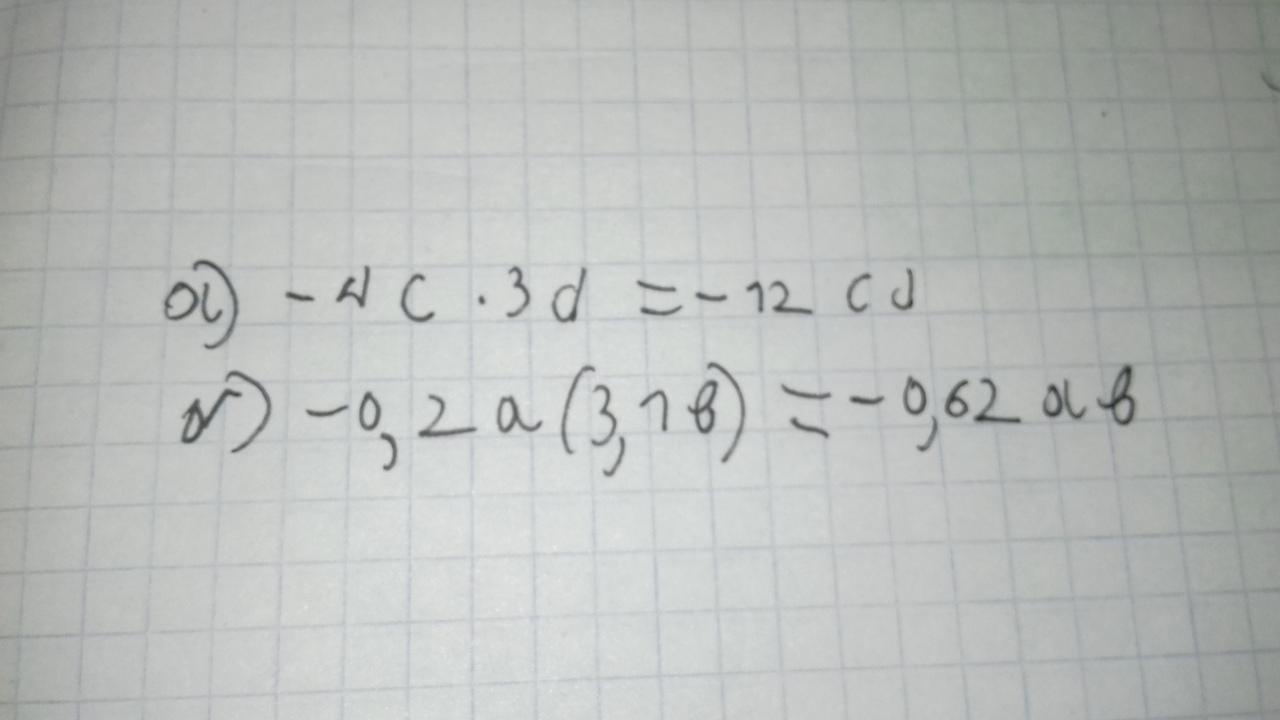 а) -4c · 3d = -12 cd
б) -0,2a(3,1b) = -0,62 ab